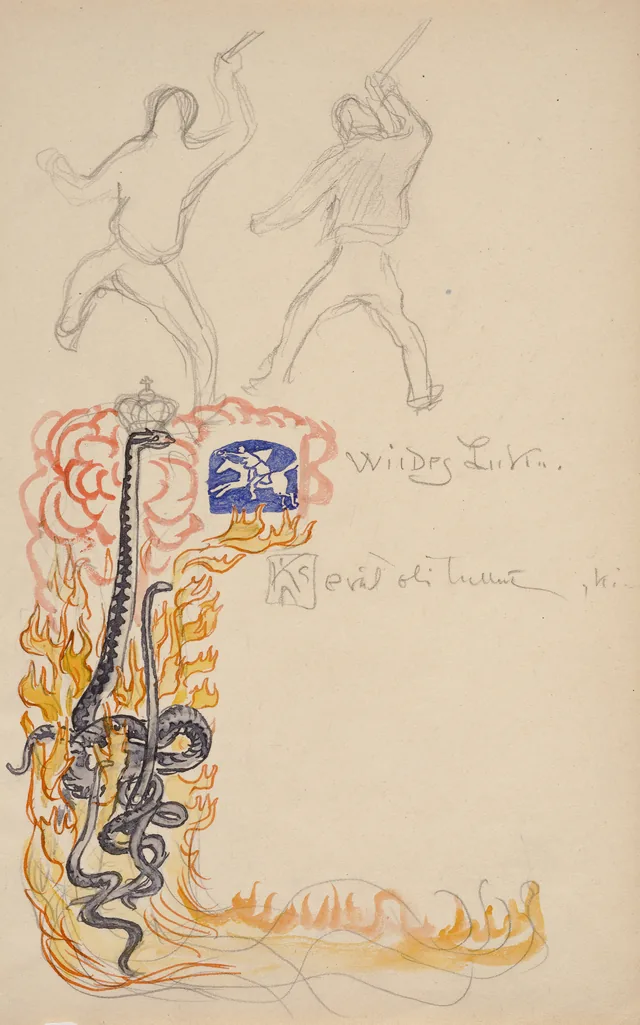 Wiides Luku.
Kevät oli tullut